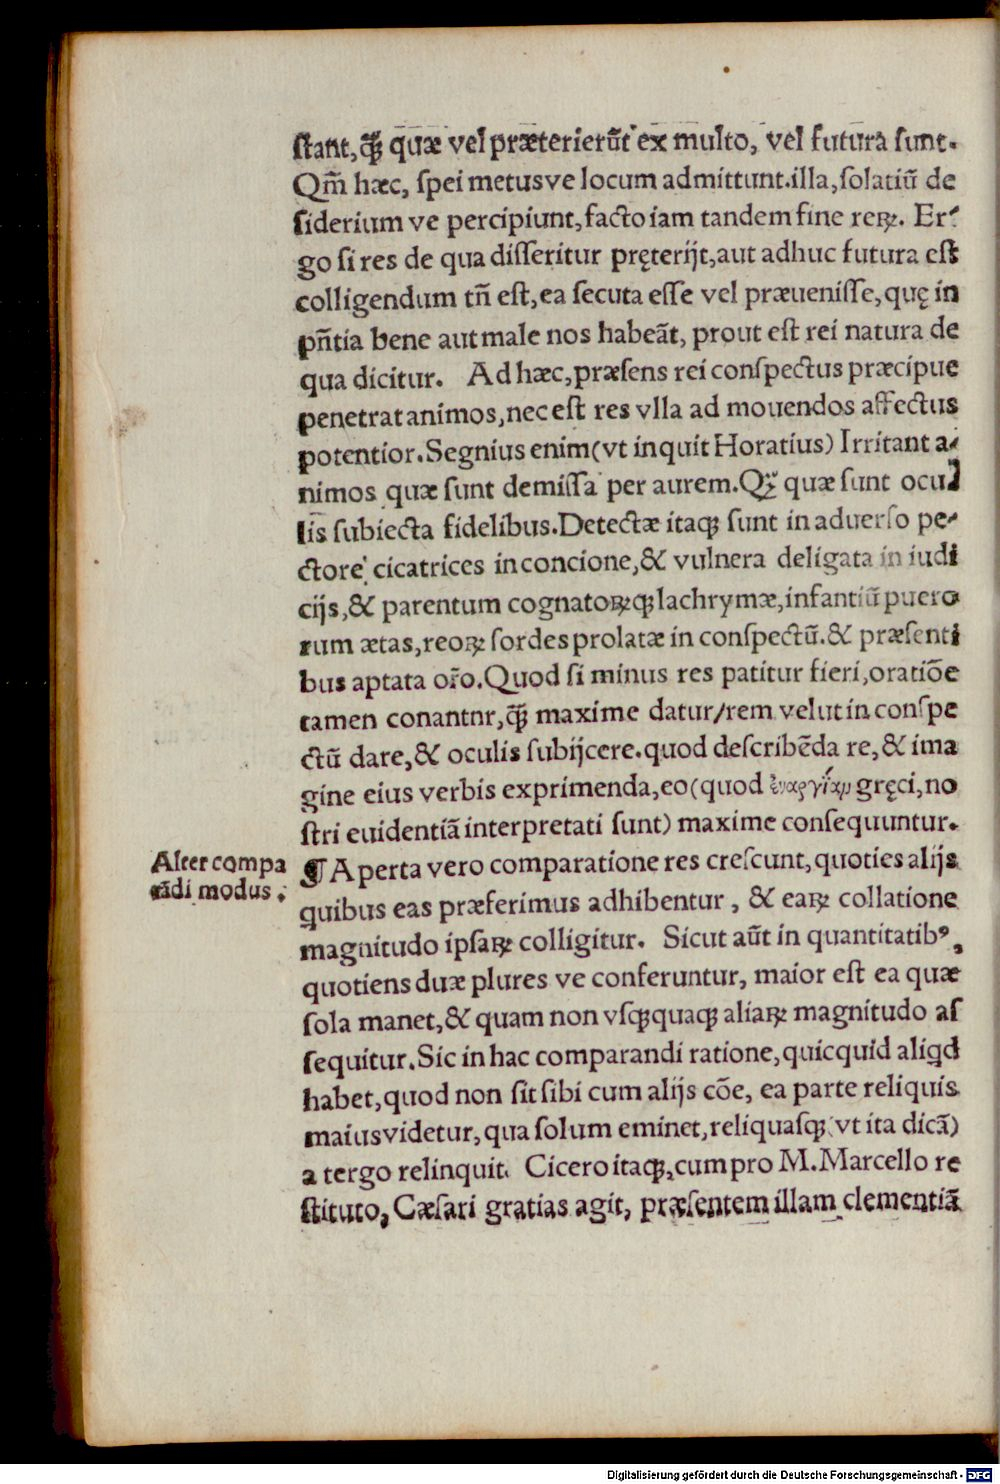 ſtant, qȝ̃ quæ vel præterierũt ex multo, vel futura ſunt.
Qm̃ hæc, ſpei metusve locum admittunt. illa, ſolatiũ de
ſiderium ve percipiunt, facto iam tandem fine reꝝ. Er⸗
go ſi res de qua diſſeritur pręterijt, aut adhuc futura eſt
colligendum tñ eſt, ea ſecuta eſſe vel præueniſſe, quę in
pñtia bene aut male nos habeãt, prout eſt rei natura de
qua dicitur. Ad hæc, præſens rei conſpectus præcipue
penetrat animos, nec eſt res vlla ad mouendos affectus
potentior. Segnius enim (vt inquit Horatius) Irritant a⸗
nimos quæ ſunt demiſſa per aurem. Qꝫ quæ ſunt ocu
lis ſubiecta fidelibus. Detectæ itaqꝫ ſunt in aduerſo pe⸗
ctore cicatrices in concione, & vulnera deligata in iudi
cijs, & parentum cognatoꝝqꝫ lachrymæ, infantiũ puero
rum ætas, reoꝝ ſordes prolatæ in conſpectũ. & præſenti
bus aptata or̃o. Quod ſi minus res patitur fieri, oratiõe
tamen conantnr, qȝ̃ maxime datur/rem velut in conſpe
ctũ dare, & oculis ſubijcere. quod deſcribẽda re, & ima
gine eius verbis exprimenda, eo (quod ἐναργίαν gręci, no
ſtri euidentiã interpretati ſunt) maxime conſequuntur.
Alter compa
rãdi modus.
¶ Aperta vero comparatione res creſcunt, quoties alijs
quibus eas præferimus adhibentur, & eaꝝ collatione
magnitudo ipſaꝝ colligitur. Sicut aũt in quantitatibꝰ,
quotiens duæ plures ve conferuntur, maior eſt ea quæ
ſola manet, & quam non vſqꝫquaqꝫ aliaꝝ magnitudo aſ
ſequitur. Sic in hac comparandi ratione, quicquid aliqd
habet, quod non ſit ſibi cum alijs cõe, ea parte reliquis
maius videtur, qua ſolum eminet, reliquaſqꝫ (vt ita dicã)
a tergo relinquit. Cicero itaqꝫ, cum pro M. Marcello re
ſtituto, Cæſari gratias agit, præſentem illam clementiã
Digitalisierung gefördert durch die Deutsche Forschungsgemeinschaft - DFG